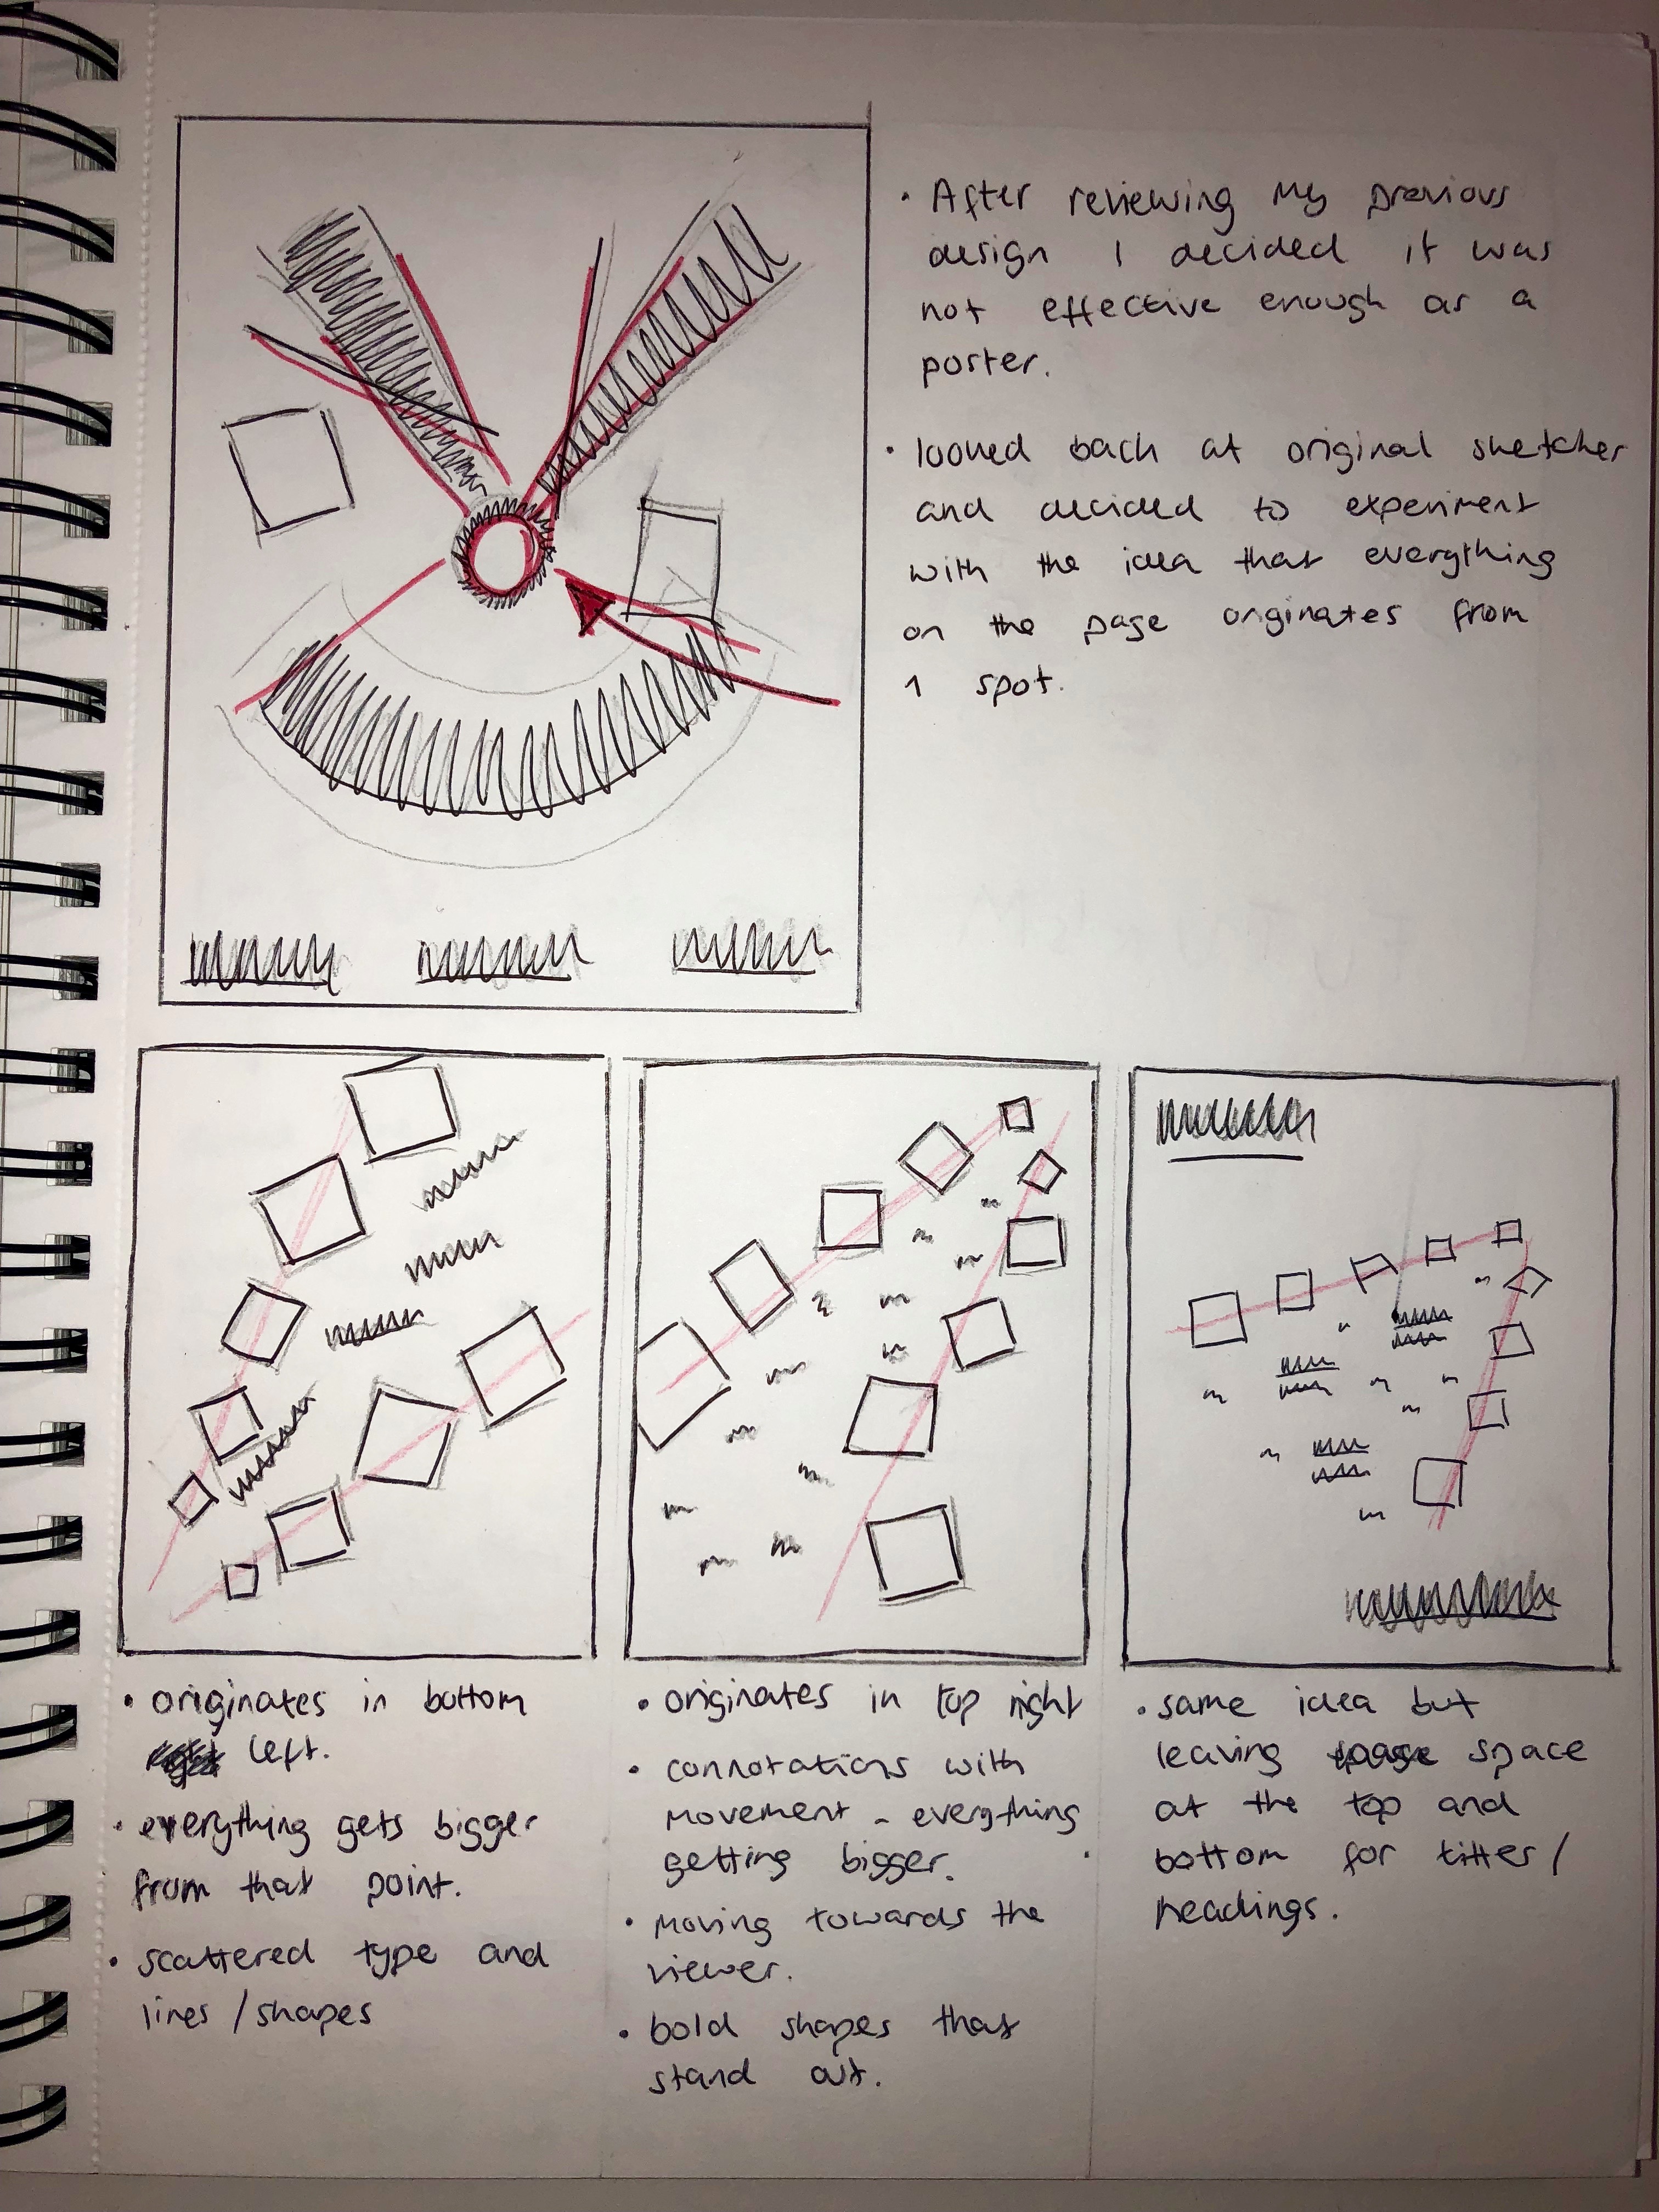 • After reviewing my previous
design I decided it was
not effective enough as a
poster.
• looked back at original sketches
and decided to experiment
with the idea that everything
on the page originates from
1 spot.
• originates in bottom
left.
• everything gets bigger
from that point.
• scattered type and
lines / shapes
• originates in top right
• connotations with
movement - everything
getting bigger.
• moving towards the
viewer.
• bold shapes that
stand out.
• same idea but
leaving space
at the top and
bottom for titles /
headings.